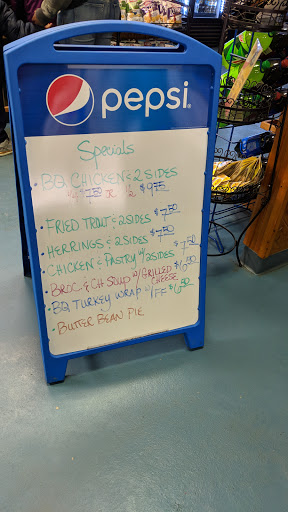 pepsi
Specials
• BQ CHICKEN & 2 SIDES
1/4 $7.50 1/2 $9.55
• FRIED TROUT & 2 SIDES $7.50
• HERRINGS & 2 SIDES $7.50
• CHICKEN & PASTRY W/ 2 SIDES $7.50
• BROC. & CH SOUP W/ GRILLED CHEESE $6.50
• BQ TURKEY WRAP FF $6.50
• BUTTER BEAN PIE